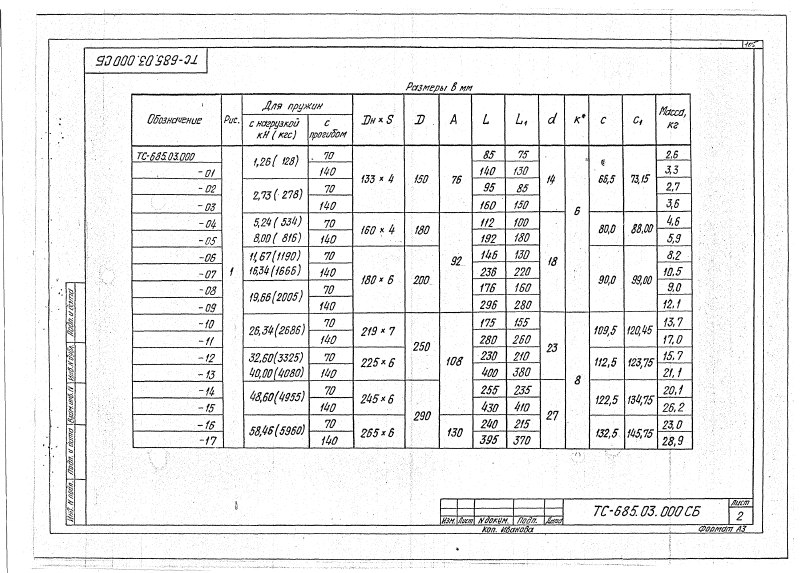 ТС-685.03.000 СБ
Размеры в мм
Обозначение Рис. Для пружин Dн × S D A L L₁ d к* c c₁ Масса, кг
с нагрузкой кН (кгс) с прогибом
ТС-685.03.000 1 1,26 (128) 70 133 × 4 150 76 85 75 14 6 66,5 73,15 2,6
- 01 140 140 130 3,3
- 02 2,73 (278) 70 95 85 2,7
- 03 140 160 150 3,6
- 04 5,24 (534) 70 160 × 4 180 92 112 100 18 80,0 88,00 4,6
- 05 8,00 (816) 140 192 180 5,9
- 06 11,67 (1190) 70 180 × 6 200 146 130 90,0 99,00 8,2
- 07 16,34 (1666) 140 236 220 10,5
- 08 19,66 (2005) 70 176 160 9,0
- 09 140 296 280 12,1
- 10 26,34 (2686) 70 219 × 7 250 108 175 155 23 8 109,5 120,45 13,7
- 11 140 280 260 17,0
- 12 32,60 (3325) 70 225 × 6 230 210 112,5 123,75 15,7
- 13 40,00 (4080) 140 400 380 21,1
- 14 48,60 (4955) 70 245 × 6 290 255 235 27 122,5 134,75 20,1
- 15 140 430 410 26,2
- 16 58,46 (5960) 70 265 × 6 130 240 215 132,5 145,75 23,0
- 17 140 395 370 28,9
Подп. и дата
Инв. N дубл.
Взам. инв. N
Подп. и дата
Инв. N подл.
Изм. Лист N докум. Подп. Дата
ТС-685.03.000 СБ
Лист
2
Коп. Иванова
Формат А3